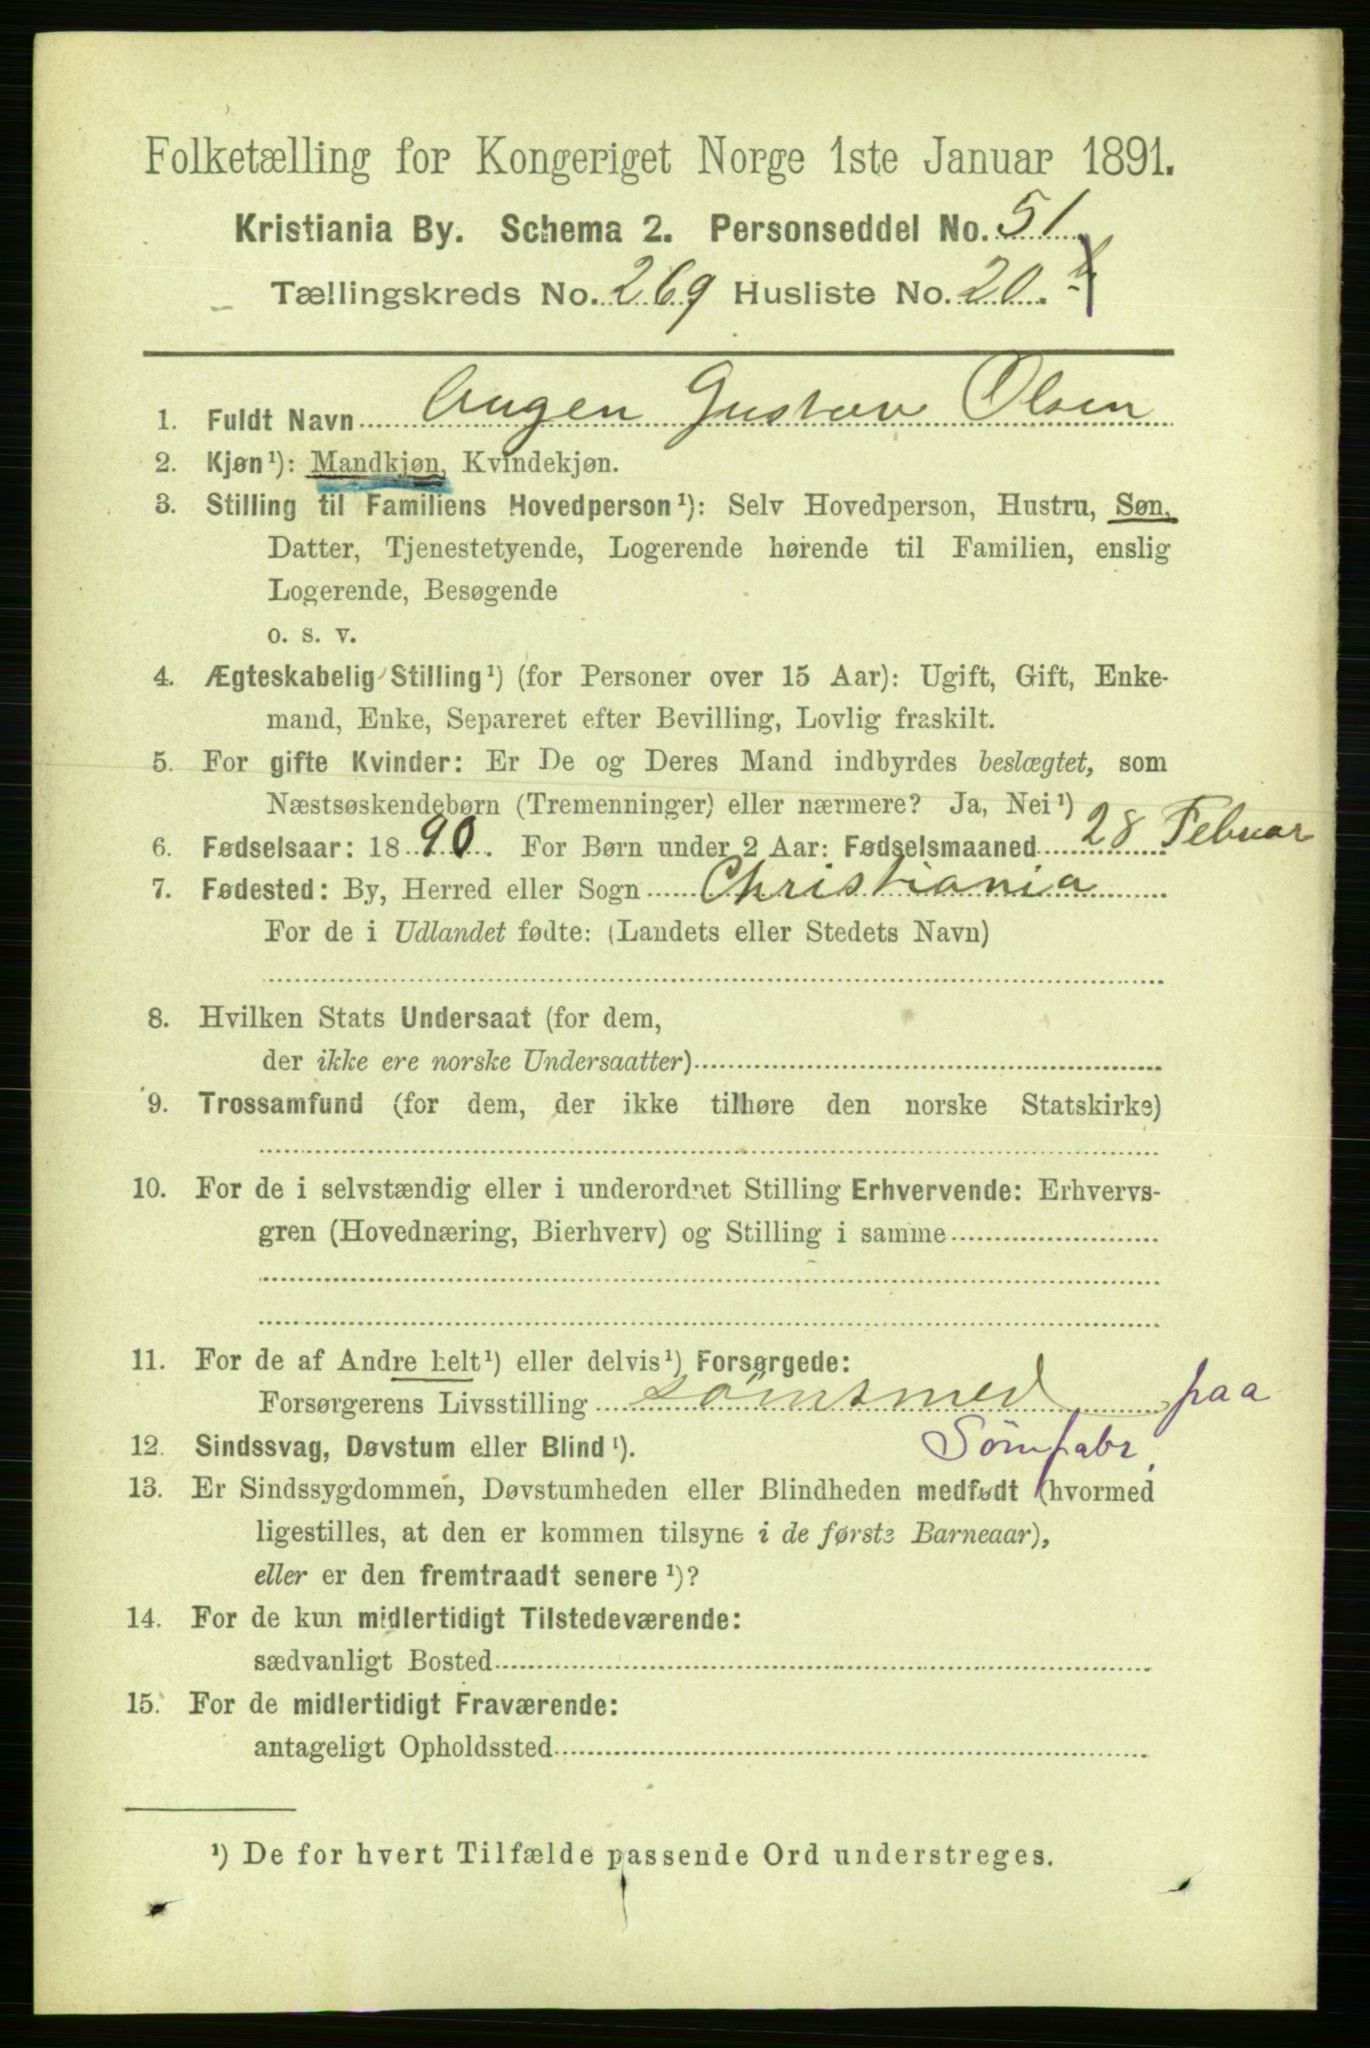 Folketælling for Kongeriget Norge 1ste Januar 1891.
Kristiania By. Schema 2. Personseddel No. 51
Tællingskreds No. 269 Husliste No. 20.
1. Fuldt Navn Augen Gustav Olsen
2. Kjøn¹): Mandkjøn, Kvindekjøn.
3. Stilling til Familiens Hovedperson¹): Selv Hovedperson, Hustru, Søn,
Datter, Tjenestetyende, Logerende hørende til Familien, enslig
Logerende, Besøgende
o. s. v.
4. Ægteskabelig Stilling¹) (for Personer over 15 Aar): Ugift, Gift, Enke-
mand, Enke, Separeret efter Bevilling, Lovlig fraskilt.
5. For gifte Kvinder: Er De og Deres Mand indbyrdes beslægtet, som
Næstsøskendebørn (Tremenninger) eller nærmere? Ja, Nei¹)
6. Fødselsaar: 1890. For Børn under 2 Aar: Fødselsmaaned 28 Februar
7. Fødested: By, Herred eller Sogn Christiania
For de i Udlandet fødte: (Landets eller Stedets Navn)
8. Hvilken Stats Undersaat (for dem,
der ikke ere norske Undersaatter)
9. Trossamfund (for dem, der ikke tilhøre den norske Statskirke)
10. For de i selvstændig eller i underordnet Stilling Erhvervende: Erhvervs-
gren (Hovednæring, Bierhverv) og Stilling i samme
11. For de af Andre helt¹) eller delvis¹) Forsørgede:
Forsørgerens Livsstilling Sömsmed paa
Sömfabr.
12. Sindssvag, Døvstum eller Blind¹).
13. Er Sindssygdommen, Døvstumheden eller Blindheden medfødt (hvormed
ligestilles, at den er kommen tilsyne i de første Barneaar),
eller er den fremtraadt senere¹)?
14. For de kun midlertidigt Tilstedeværende:
sædvanligt Bosted
15. For de midlertidigt Fraværende:
antageligt Opholdssted
¹) De for hvert Tilfælde passende Ord understreges.